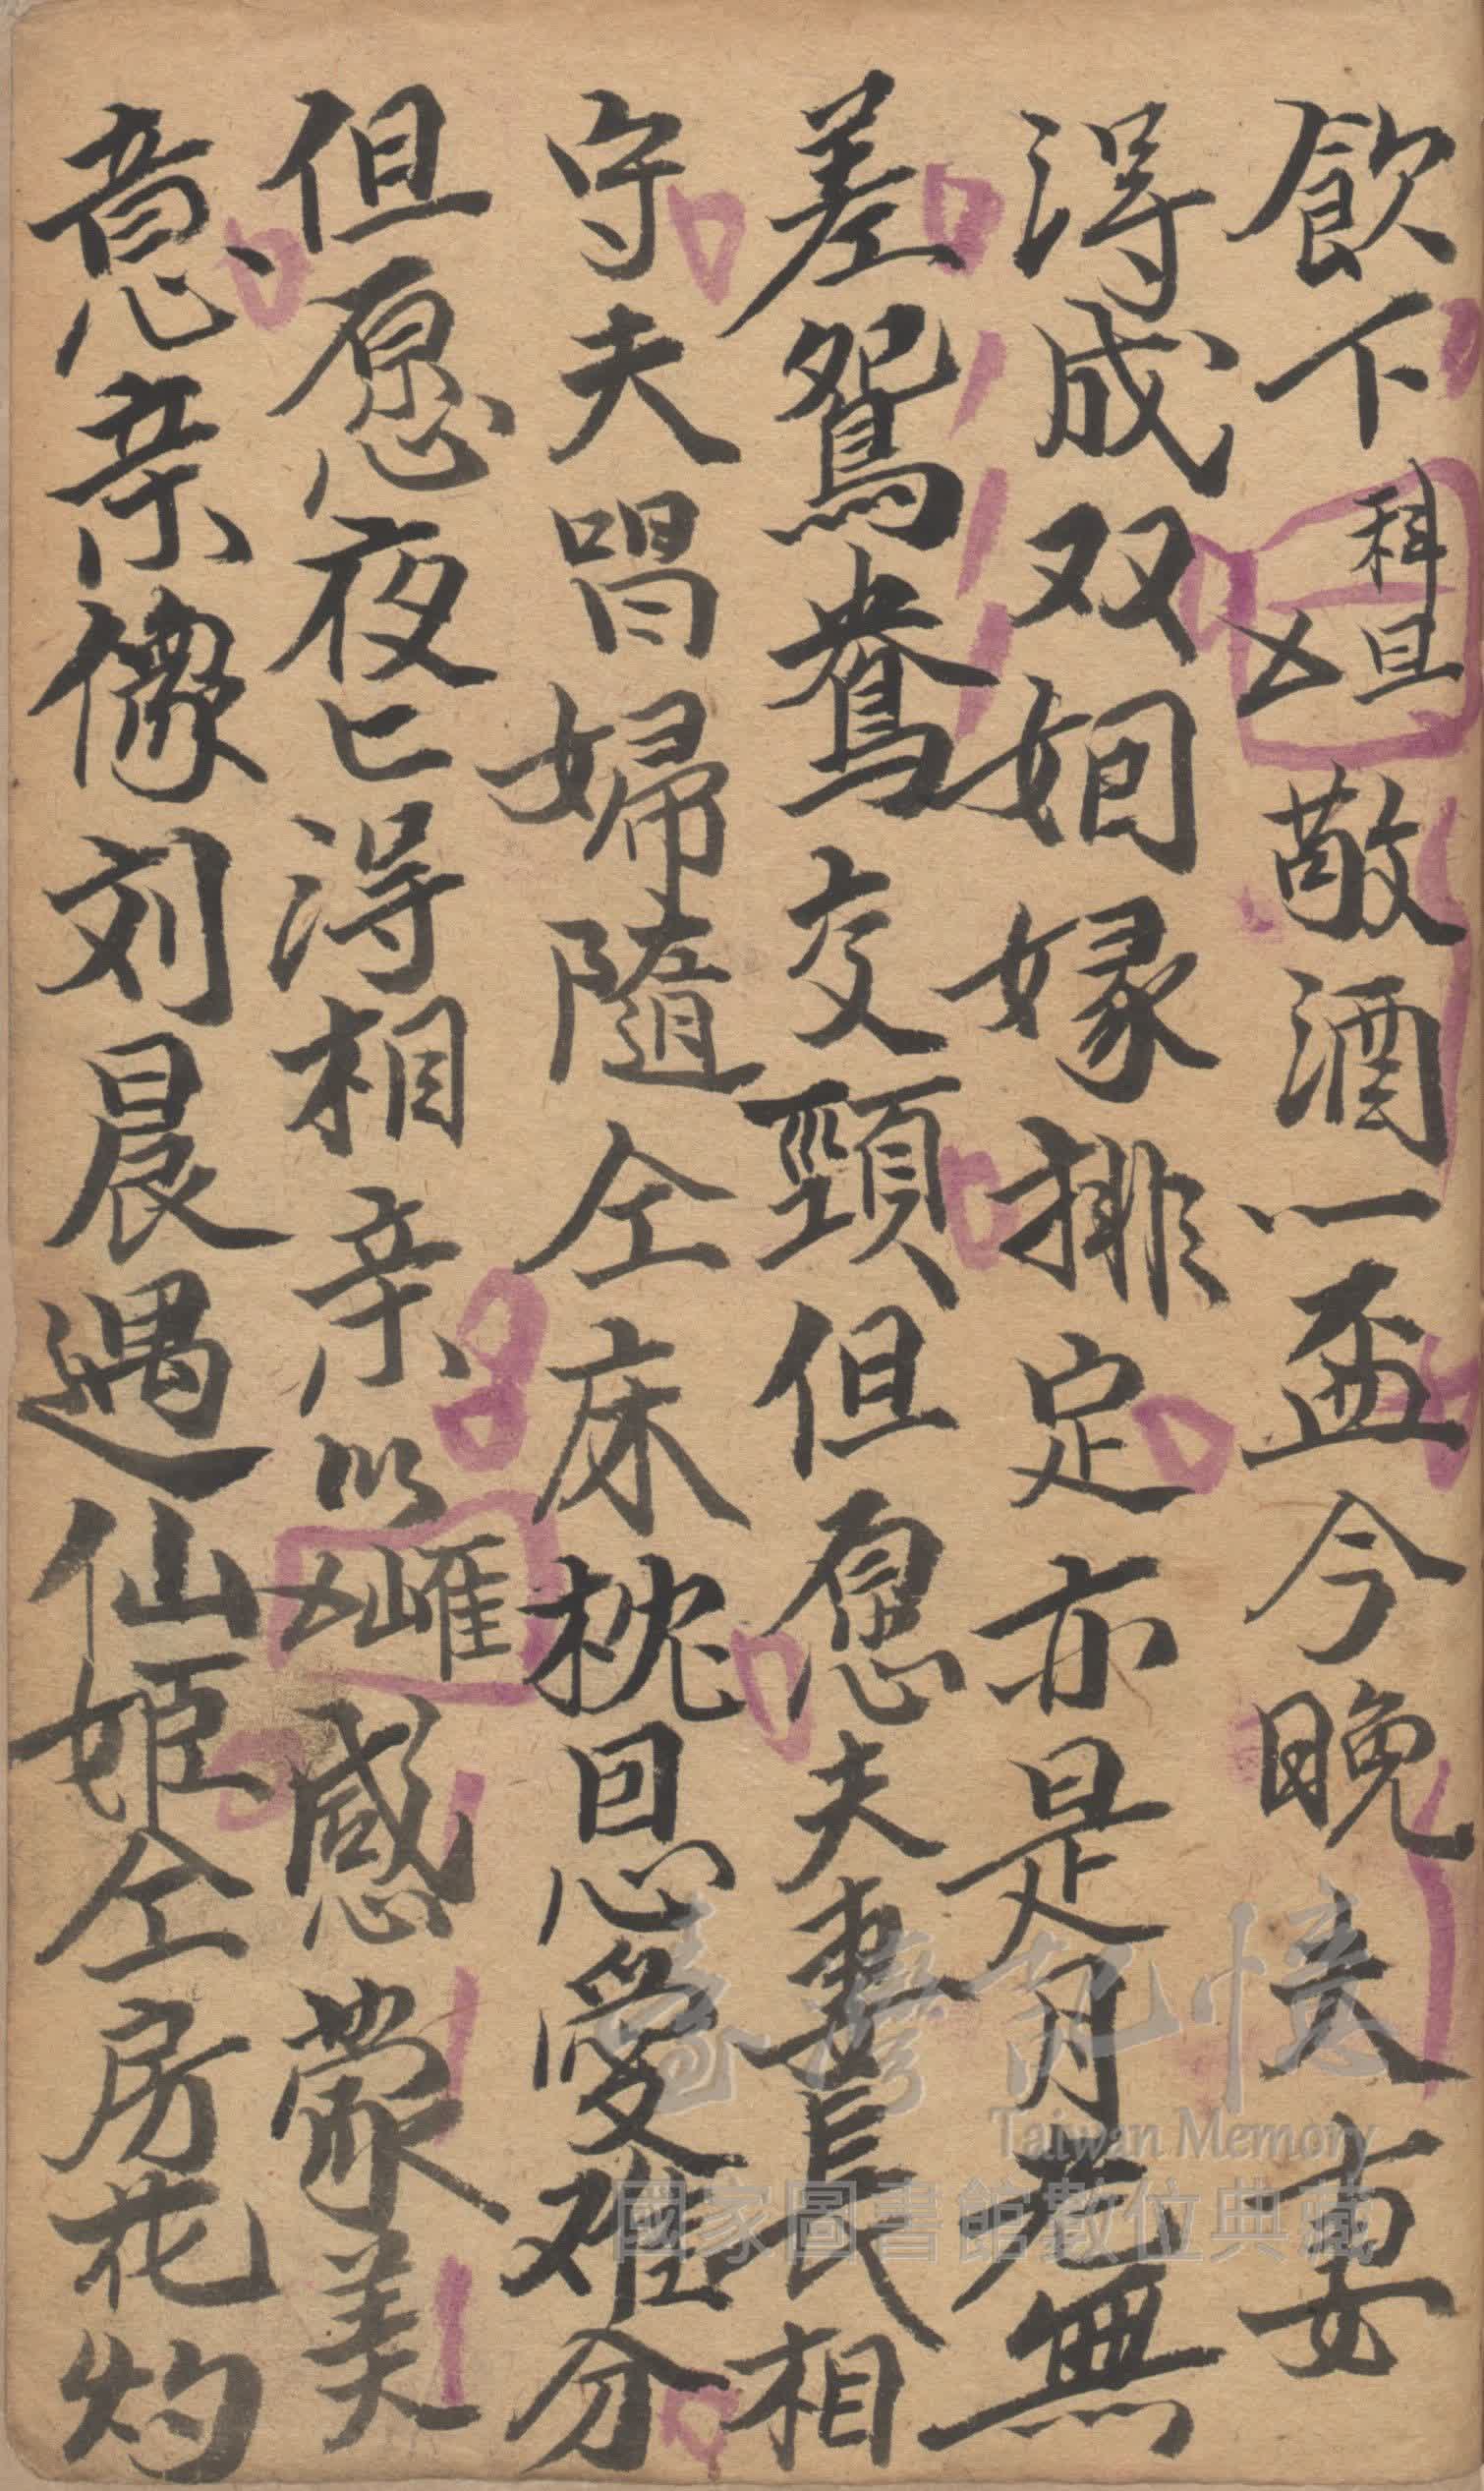 飲下科旦又敬酒一盃今晚夫妻
淂成双姻緣排定亦是月老無
差鴛鴦交頸但愿夫妻長相
守夫唱婦隨仝床枕恩愛难分
但愿夜匕淂相亲以又崔感蒙美
意亲像刘晨遇仙姬仝房花灼
臺灣記憶
Taiwan Memory
國家圖書館數位典藏